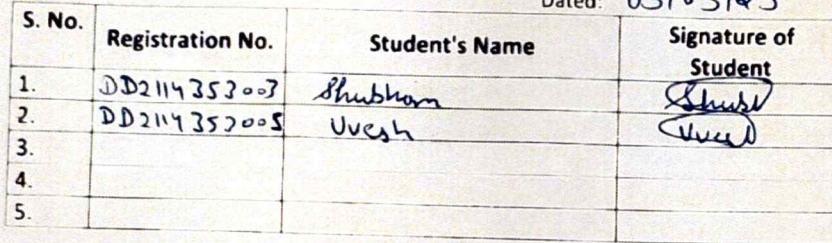 Dated: 03/03/23
S. No. Registration No. Student's Name Signature of Student
1. DD2114353003 Shubham Shub
2. DD2114353005 Uvesh
3.
4.
5.